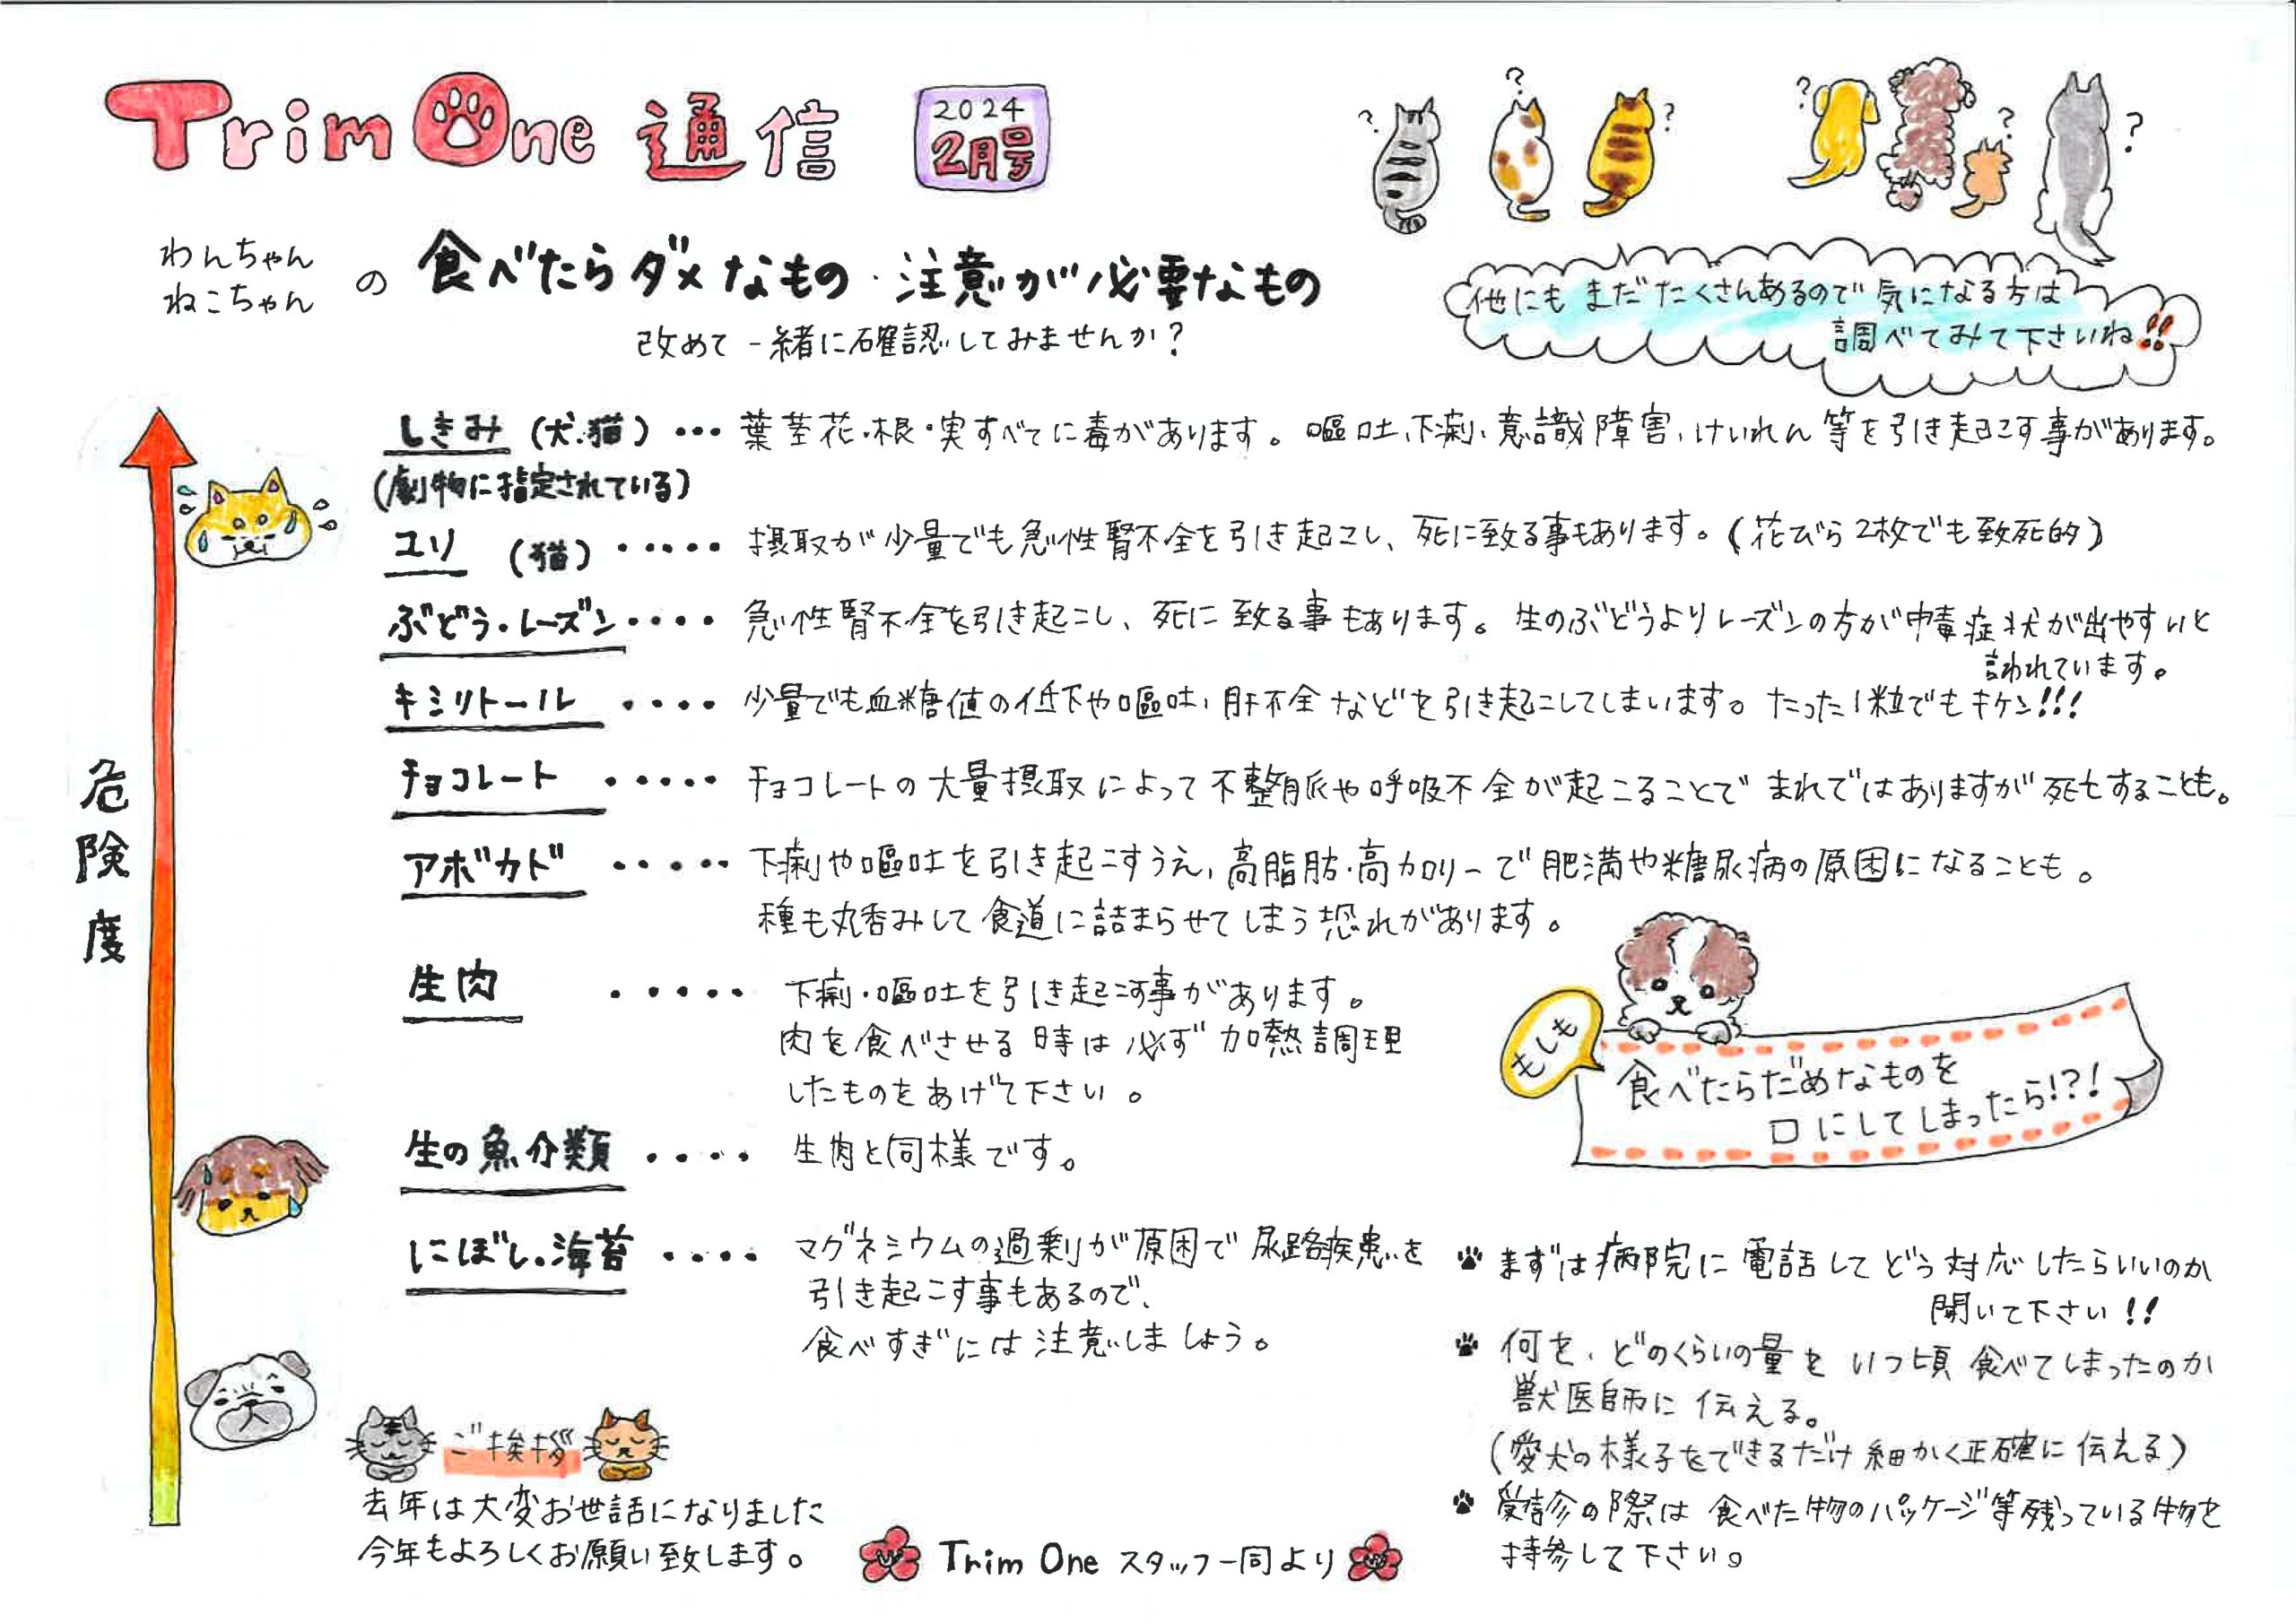 Trim One 通信
2024
2月号
わんちゃん
ねこちゃん
の 食べたらダメなもの・注意が必要なもの
改めて一緒に確認してみませんか？
他にもまだたくさんあるので気になる方は
調べてみて下さいね!!
危険度
しきみ (犬・猫) ・・・ 葉・茎・花・根・実すべてに毒があります。嘔吐、下痢、意識障害、けいれん等を引き起こす事があります。
(劇物に指定されている)
ユリ (猫) ・・・・・ 摂取が少量でも急性腎不全を引き起こし、死に致る事もあります。(花びら2枚でも致死的)
ぶどう・レーズン・・・・ 急性腎不全を引き起こし、死に致る事もあります。生のぶどうよりレーズンの方が中毒症状が出やすいと
言われています。
キシリトール ・・・・ 少量でも血糖値の低下や嘔吐、肝不全などを引き起こしてしまいます。たった1粒でもキケン!!!
チョコレート ・・・・・ チョコレートの大量摂取によって不整脈や呼吸不全が起こることでまれではありますが死亡することも。
アボカド ・・・・・ 下痢や嘔吐を引き起こすうえ、高脂肪・高カロリーで肥満や糖尿病の原因になることも。
種も丸呑みして食道に詰まらせてしまう恐れがあります。
生肉 ・・・・・ 下痢・嘔吐を引き起こす事があります。
肉を食べさせる時は必ず加熱調理
したものをあげて下さい。
生の魚介類 ・・・・ 生肉と同様です。
にぼし・海苔 ・・・・ マグネシウムの過剰が原因で尿路疾患を
引き起こす事もあるので、
食べすぎには注意しましょう。
もしも
食べたらだめなものを
口にしてしまったら!?!
まずは病院に電話してどう対応したらいいのか
聞いて下さい!!
何を、どのくらいの量をいつ頃食べてしまったのか
獣医師に伝える。
(愛犬の様子をできるだけ細かく正確に伝える)
受診の際は食べた物のパッケージ等残っている物を
持参して下さい。
ご挨拶
去年は大変お世話になりました
今年もよろしくお願い致します。
Trim One スタッフ一同より